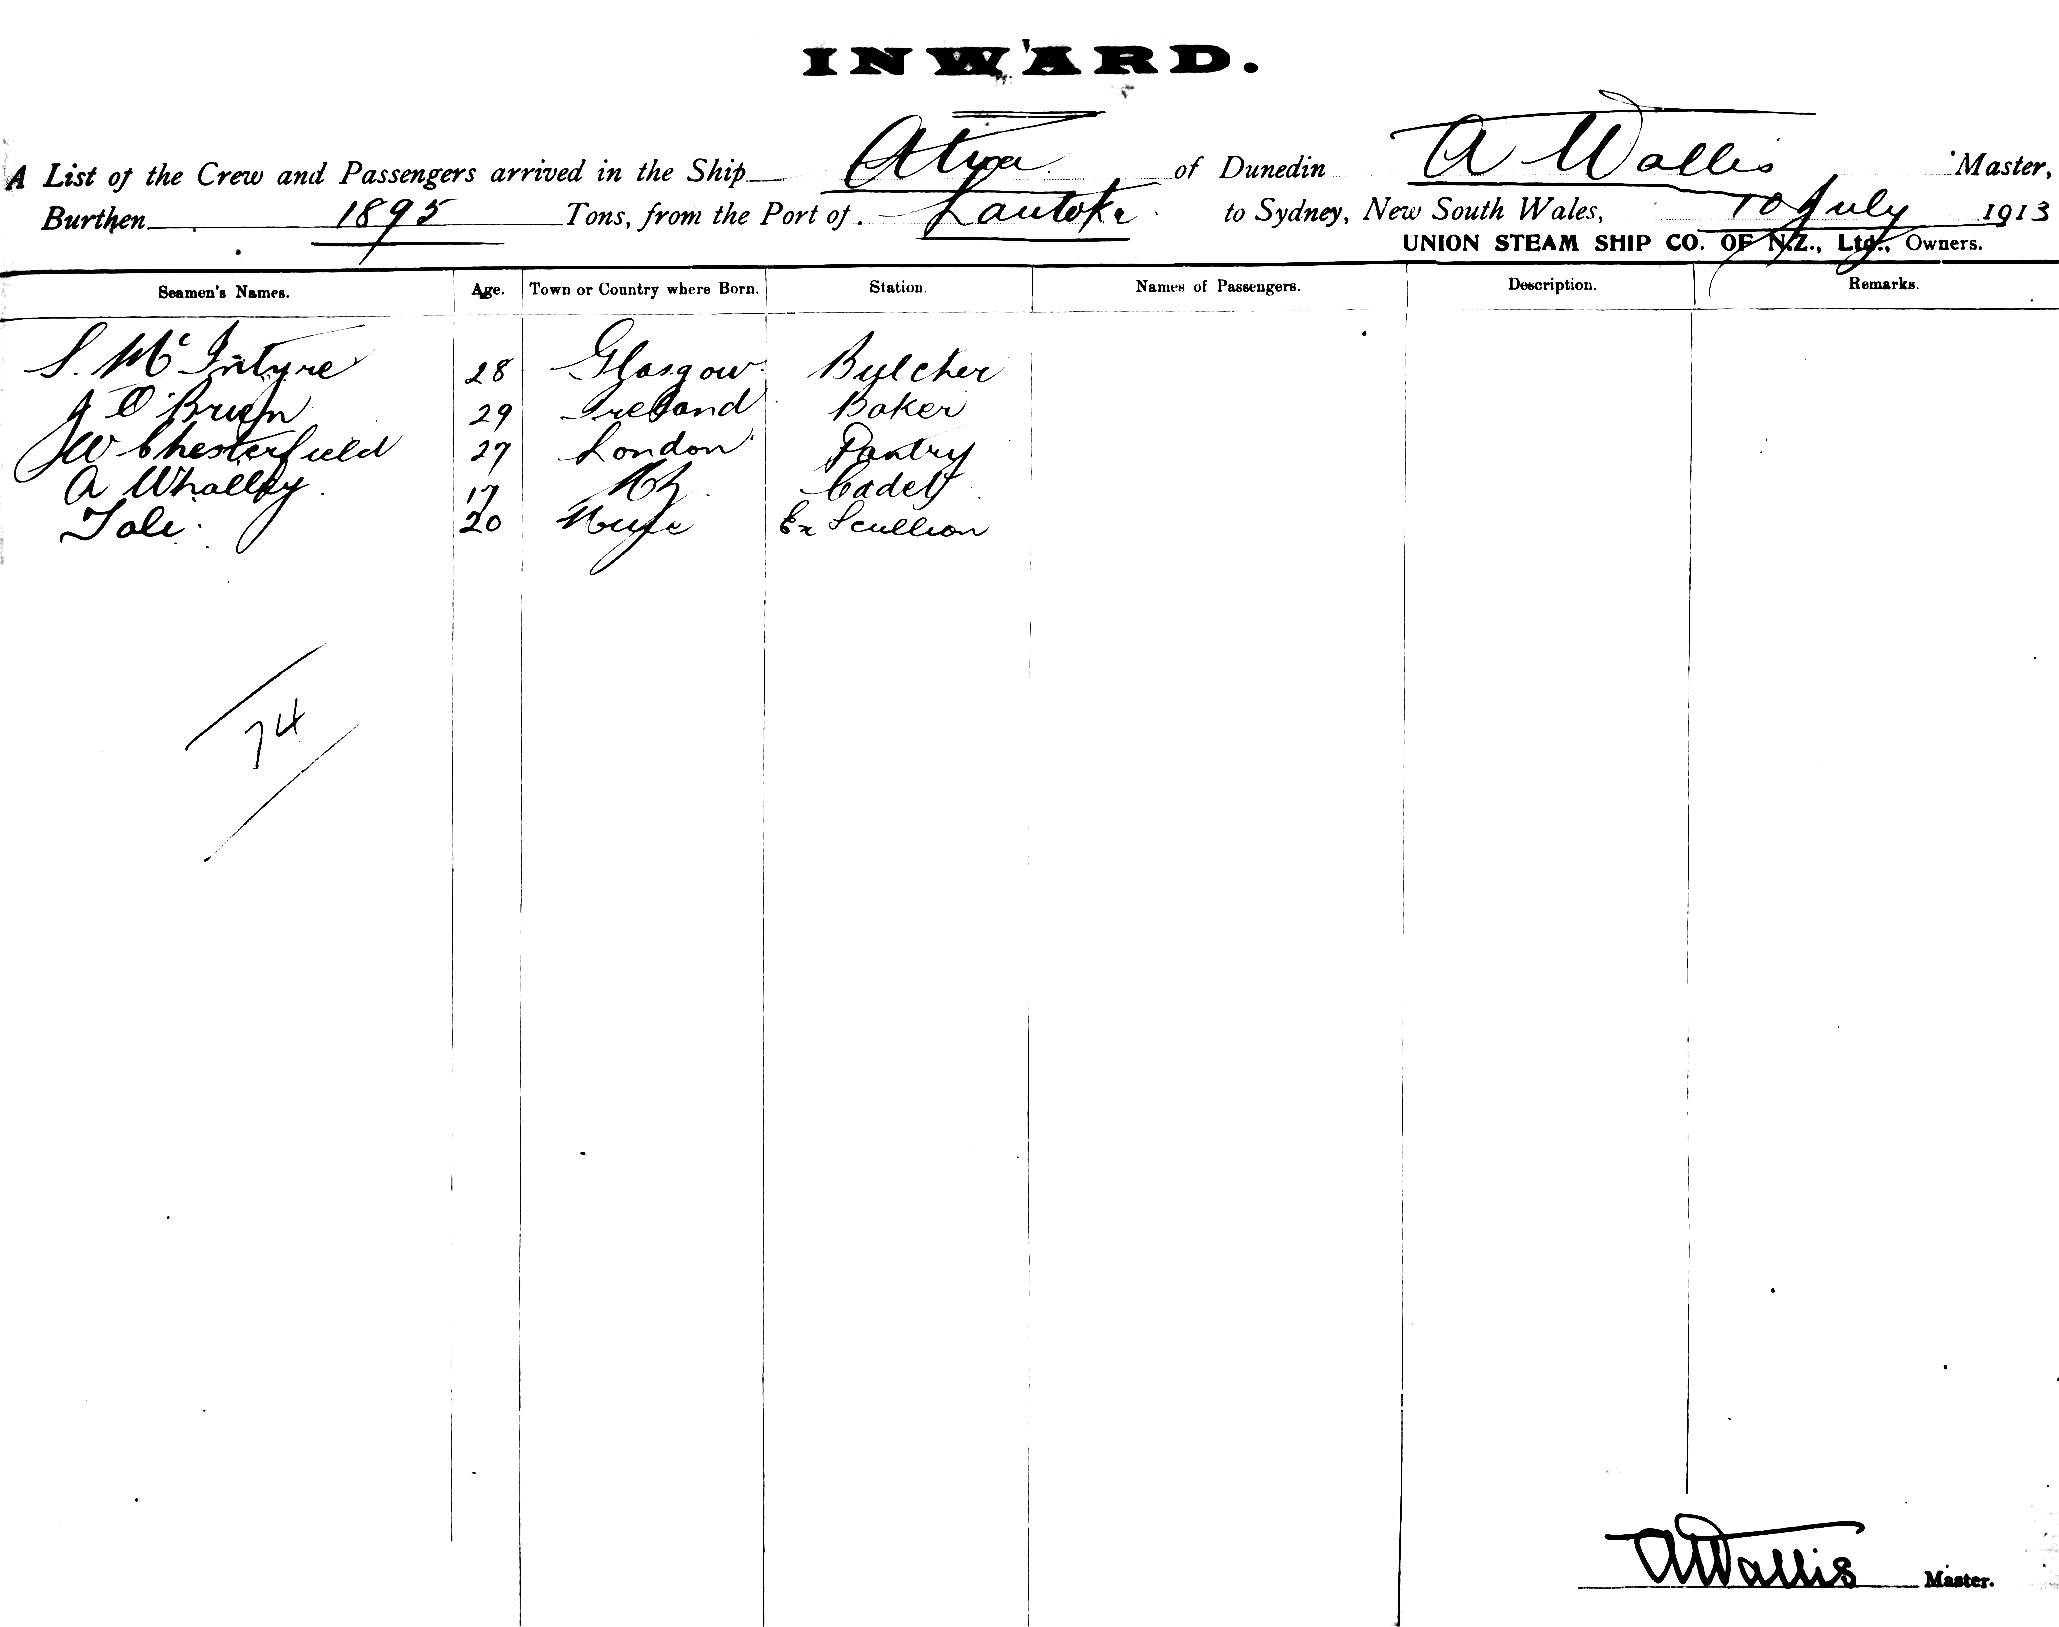 INWARD.
A List of the Crew and Passengers arrived in the Ship Atua of Dunedin A Wallis Master,
Burthen 1895 Tons, from the Port of Lautoka to Sydney, New South Wales, 10 July 1913
UNION STEAM SHIP CO. OF N.Z., Ltd., Owners.
Seamen's Names. Age. Town or Country where Born. Station. Names of Passengers. Description. Remarks.
S. McIntyre 28 Glasgow Butcher
J O'Brien 29 Ireland Baker
JW Chesterfield 27 London Pantry
A Whalley 17 NZ Cadet
Tole 20 Scullion
74
A Wallis Master.